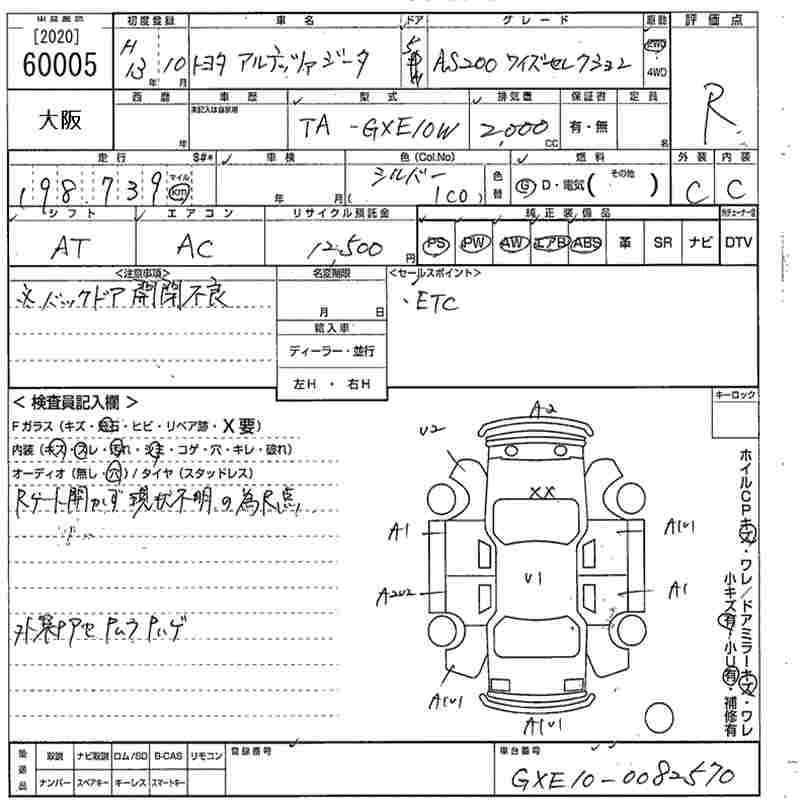 [2020]
60005
大阪
初度登録 車名 ドア グレード 原動 評価点
H 13 年 10 月 トヨタ アルテッツァジータ 5 AS200 ワイズセレクション 2WD 4WD R
西暦 車歴 型式 排気量 保証書 定員
年 未記入は自家用 TA -GXE10W 2,000 CC 有・無 名
走行 S#* 車検 色(Col.No) 燃料 外装 内装
198.739 マイル km 年 月 シルバー ( 1C0 ) 色替 G D・電気( その他 ) C C
シフト エアコン リサイクル預託金 純正装備品
AT AC 12,500 円 PS PW AW エアB ABS 革 SR ナビ DTV
<注意事項> 名変期限 <セールスポイント>
※バックドア開閉不良 月 日 ・ETC
輸入車
ディーラー・並行
左H・右H
< 検査員記入欄 > キーロック
Fガラス(キズ・飛石・ヒビ・リペア跡・X要)
内装(キズ・スレ・汚れ・シミ・コゲ・穴・キレ・破れ)
オーディオ(無し・穴)/タイヤ(スタッドレス)
Rゲート開かず現状不明の為R点
外装PアセPムラPハゲ
A2
U2
XX
A1 A1U1
U1
A2U2 A1
A1U1
A1U1
ホイルCPキズ・ワレ/ドアミラーキズ・ワレ
小キズ有・小U有・補修有
装備品 取説 ナビ取説 ロム/SD B-CAS リモコン 登録番号 車台番号
ナンバー スペアキー キーレス スマートキー GXE10-0082570